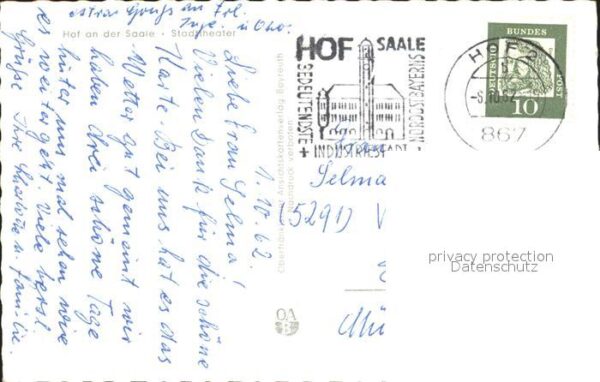 extra Gruß an
Hof an der Saale • Stadttheater
1. 10. 62.
Liebe Frau Selma!
Vielen Dank für die schöne
Karte. Bei uns hat es das
Wetter gut gemeint wir
haben drei schöne Tage
hinter uns mal sehen wie
es weitergeht. Viele herzl.
Grüße Ihre u. Familie.
Ansichtskartenverlag Bayreuth
Nachdruck verboten
OA
HOF SAALE
BEDEUTENDSTE
INDUSTRIESTADT
NORDOSTBAYERNS
HOF 2
-5.10.62
867
DEUTSCHE
BUNDES
POST
10
Selma
(5291)
Mü
privacy protection
Datenschutz